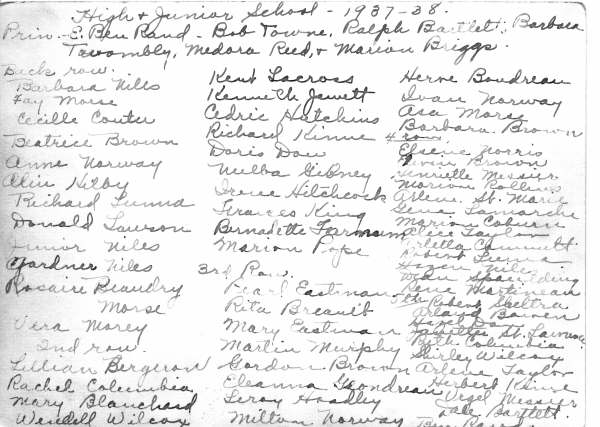 High & Junior School - 1937-38.
Prin - E. Ben Rand - Bob Towne, Ralph Bartlett, Barbara
Twombly, Medora Reed, & Marion Briggs.
Back row.
Barbara Niles
Fay Morse
Cecille Coutu
Beatrice Brown
Anne Norway
Alin Kilby
Richard Lunna
Donald Lawson
Junior Niles
Gardner Niles
Rosaire Beaudry
Morse
Vera Morey
2nd row.
Lillian Bergeron
Rachel Columbia
Mary Blanchard
Wendell Wilcox
Kent Lacross
Kenneth Jewett
Cedric Hatchins
Richard Kinne
Doris Dow
Melba Gibney
Irene Hilchcock
Frances King
Bernadette
Marion Pope
3rd Row.
Pearl Eastman
Rita Breault
Mary Eastman
Martin Murphy
Gordon Brown
Eleanna Gendreau
Leroy Hoadley
Milton Norway
Herve Boudreau
Ivan Norway
Asa Morse
Barbara Brown
4 row.
Norris
Brown
Henriette Messier
Marion Rollins
Arlene St. Marie
Gene Lamarche
Marion Coburn
Taylor
Robert Lunna
Niles
Spaulding
Rene Martineau
5th Robert Sheltra
Bowen
Hazel Dow
Ruth Columbia
Shirley Wilcox
Arlene Taylor
Herbert Kinne
Urgel Messier
Dale Bartlett.